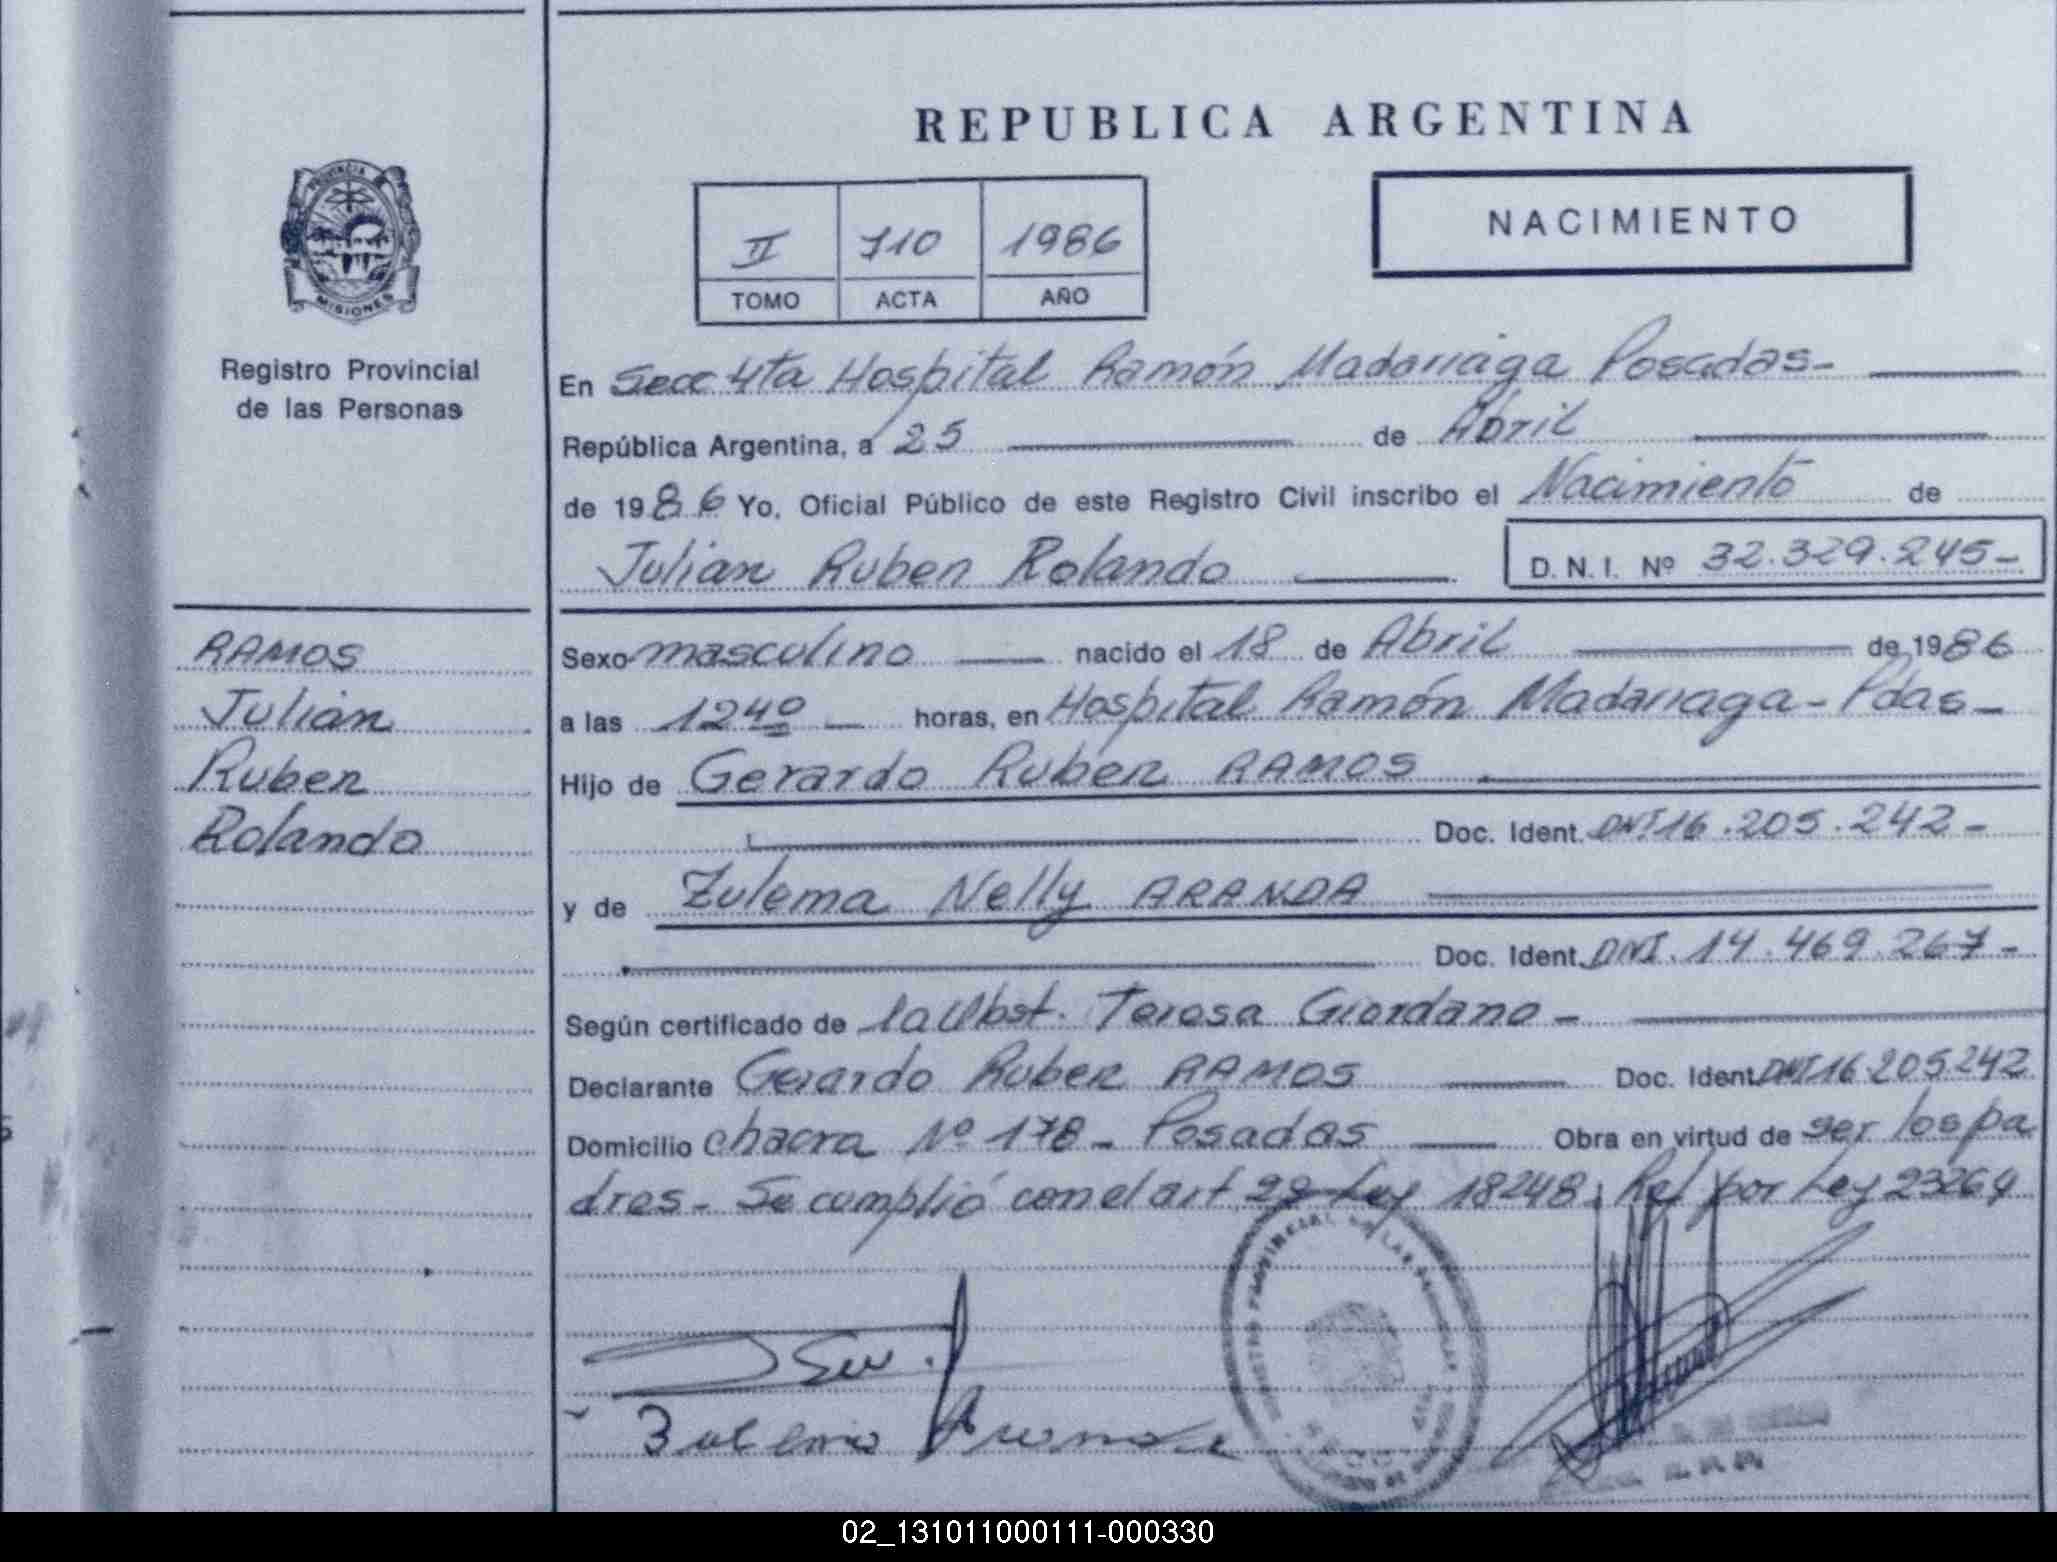 REPUBLICA ARGENTINA
PROVINCIA DE
MISIONES
Registro Provincial
de las Personas
II 710 1986
TOMO ACTA AÑO
NACIMIENTO
En Secc 4ta Hospital Ramón Madariaga Posadas-
República Argentina, a 25 de Abril
de 1986 Yo, Oficial Público de este Registro Civil inscribo el Nacimiento de
Julian Ruben Rolando D. N. I. Nº 32.329.245-
RAMOS
Julian
Ruben
Rolando
Sexo masculino nacido el 18 de Abril de 1986
a las 12 40 horas, en Hospital Ramón Madariaga - Pdas-
Hijo de Gerardo Ruben RAMOS
Doc. Ident. DNI 16.205.242-
y de Zulema Nelly ARANDA
Doc. Ident. DNI. 14.469.267-
Según certificado de la Obst. Teresa Giordano-
Declarante Gerardo Ruben RAMOS Doc. Ident. DNI 16.205.242
Domicilio chacra Nº 178- Posadas Obra en virtud de ser los pa
dres- Se cumplió con el art 29 Ley 18248. por Ley 23264
REGISTRO PROVINCIAL DE LAS PERSONAS
02_131011000111-000330